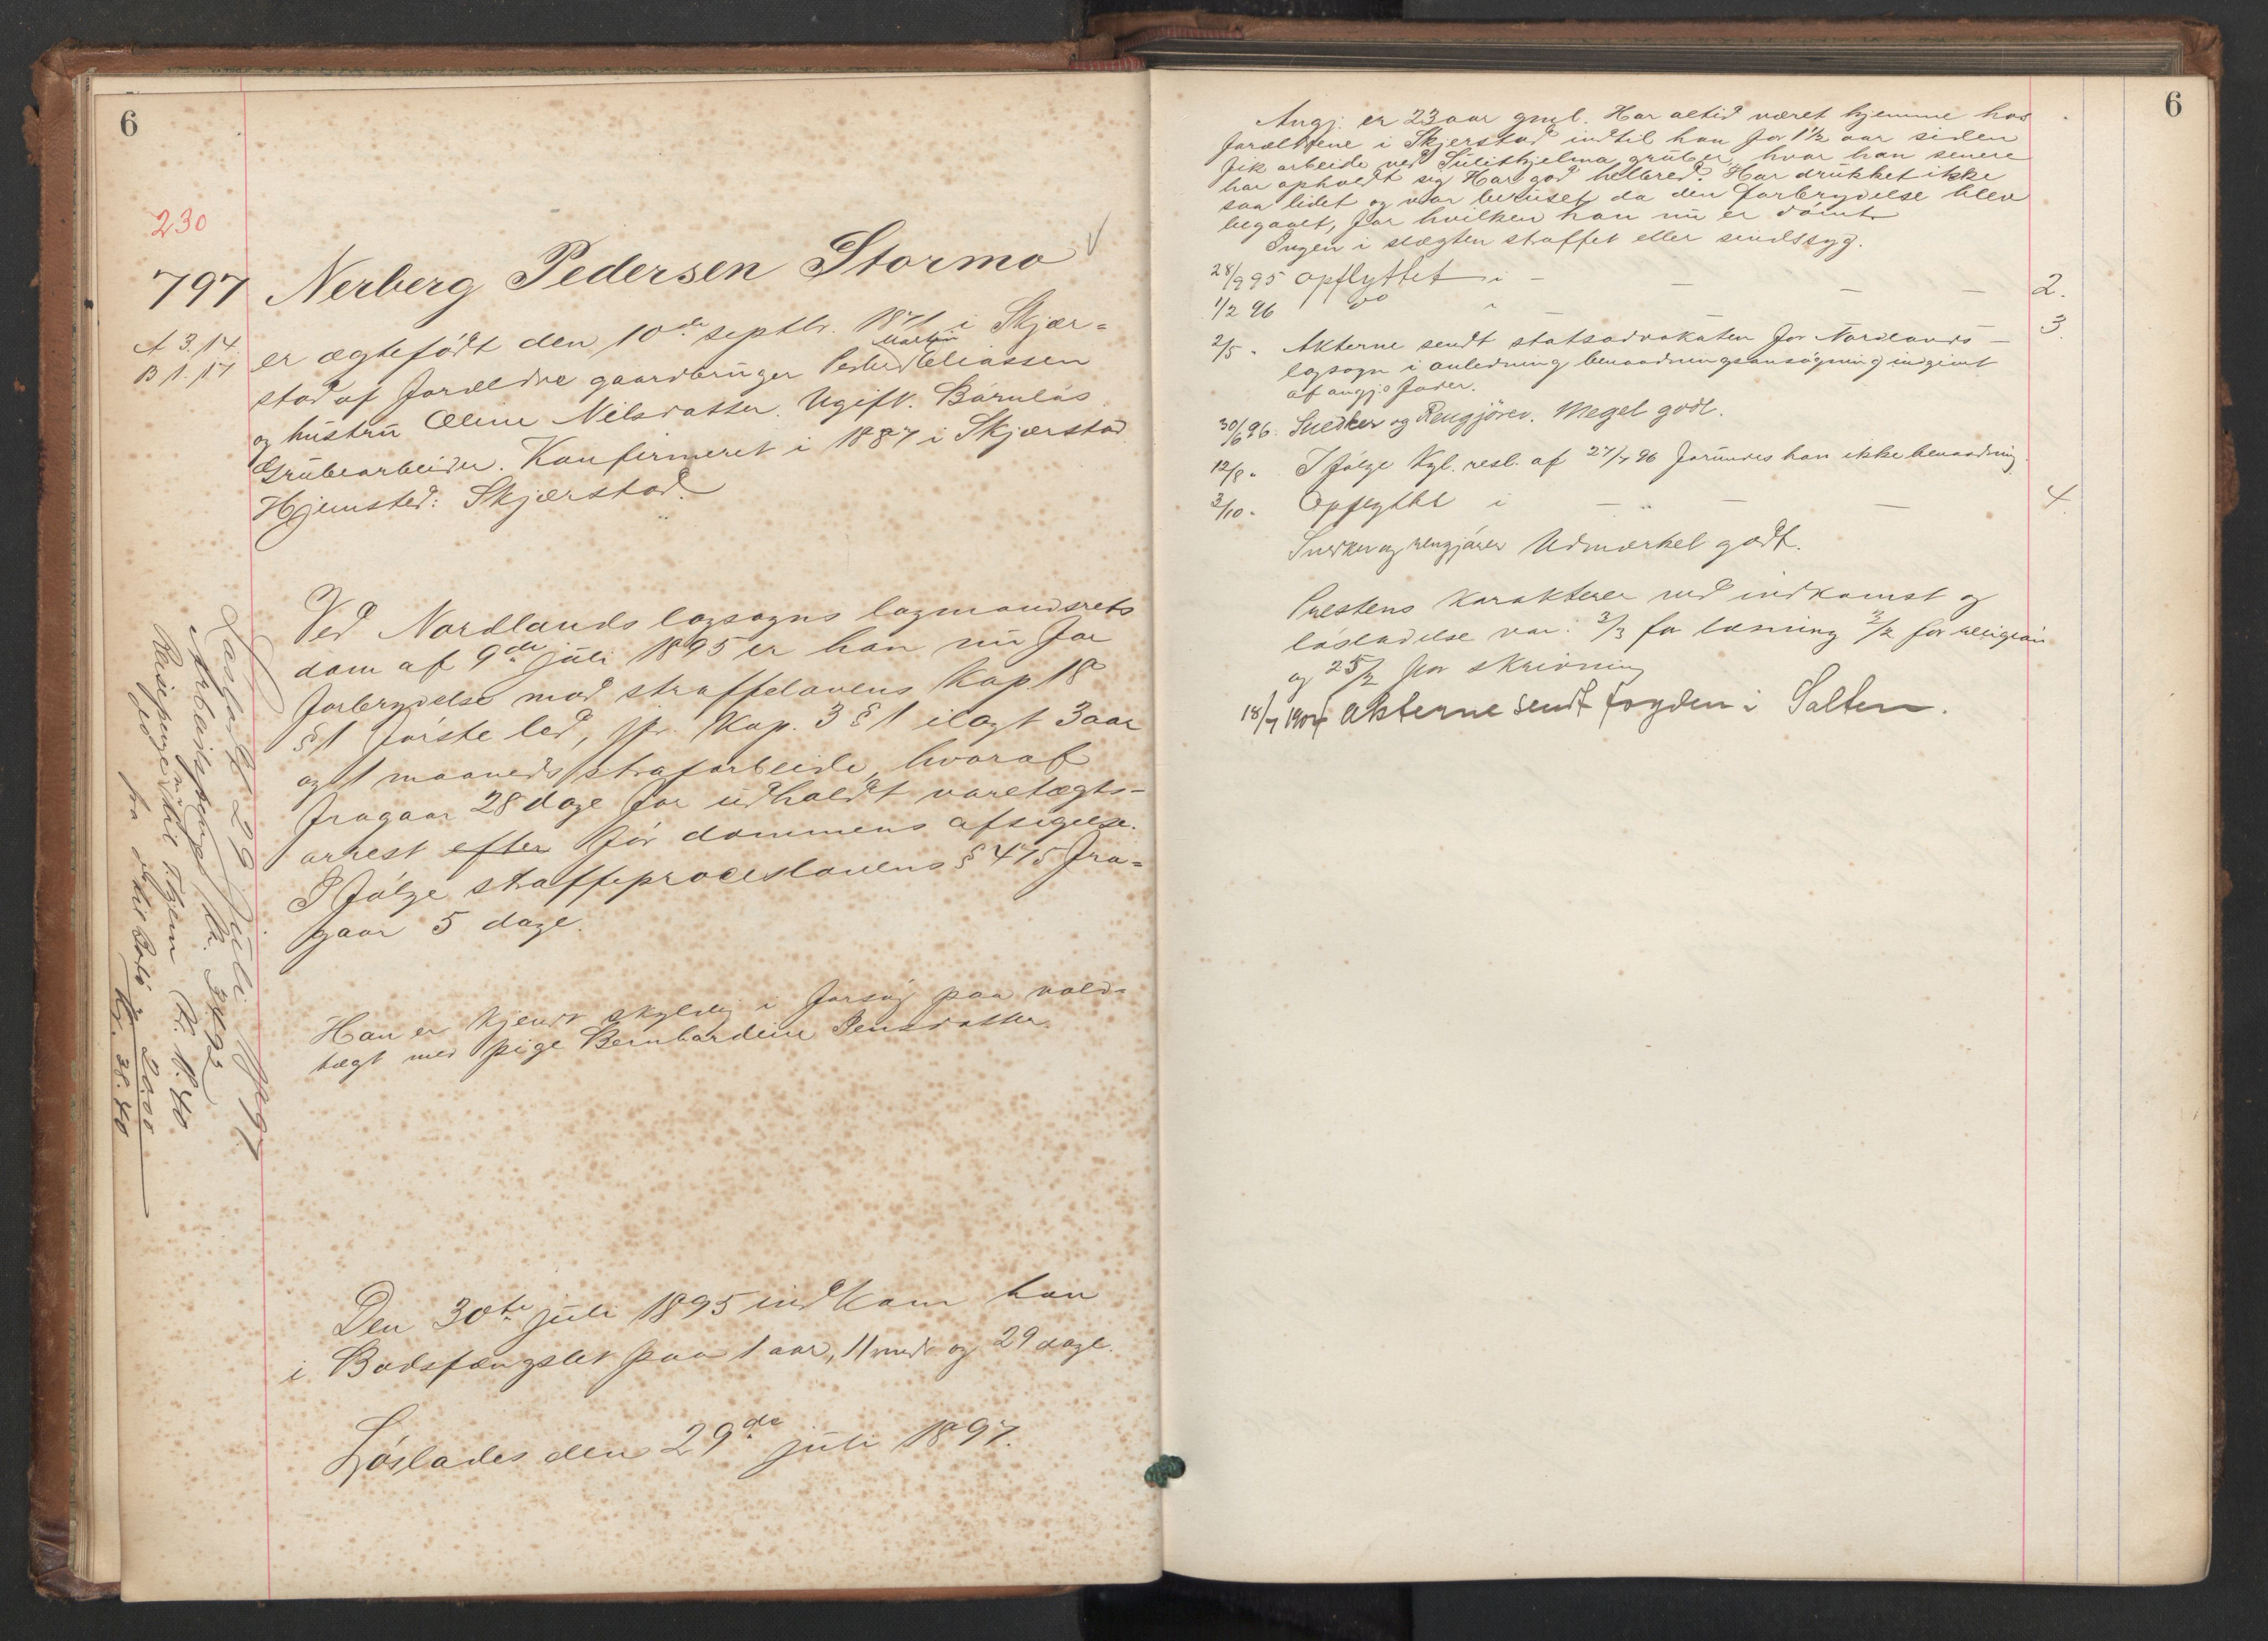 6
230
797 Nerberg Pedersen Stormo
A 3.14
B 1.17
er ægtefödt den 10de septbr. 1871 i Skjær=
stad af forældre gaardbruger Peder Martin Eliassen
og hustru Oline Nilsdatter. Ugift. Barnlös
Grubearbeider. Konfirmeret i 1887 i Skjærstad.
Hjemsted: Skjærstad.
Ved Nordlands lagsogns lagmandsrets
dom af 9de juli 1895 er han nu for
forbrydelse mod straffelovens Kap. 18
§ 1 förste led, jfr. Kap. 3 § 1 ilagt 3 aar
og 1 maaneds strafarbeide, hvoraf
fragaar 28 dage for udholdt varetægts-
arrest efter för dommens afsigelse.
I fölge straffeproceslovens § 475 fra=
gaar 5 dage.
Han er kjendt skyldig i forsög paa vold=
tægt med pige Bernhardine Jensdatter.
Den 30te juli 1895 indkom han
i Bodsfængslet paa 1 aar, 11 mdr og 29 dage.
Löslades den 29de juli 1897.
Lösladt 29 Juli 1897.
Arbeidspenge Kr.
Reisepenge
fra
Kr. 38.40
6
Angj. er 23 aar gml. Har altid været hjemme hos
forældrene i Skjerstad indtil han for 1 1/2 aar siden
fik arbeide ved Sulithjelma gruber, hvor han senere
har opholdt sig. Har god helbred. Har drukket ikke
saa lidet og var beruset da den forbrydelse blev
begaaet, for hvilken han nu er dömt.
Ingen i slægten straffet eller sindssyg.
28/9 95 opflyttet i - - - - 2.
1/2 96 do " - - - 3.
2/5 " Akterne sendt statsadvokaten for Nordlands
lagsogn i anledning benaadningsansögning indgivet
af angj.s fader.
30/6 96. Snedker og Rengjörer. Meget godt.
12/8 " I fölge Kgl. resl. af 27/7 96 forundes han ikke benaadning.
3/10 " Opflyttet i - " - - 4.
Snedker og rengjörer Udmærket godt.
Prestens karakterer ved indkomst og
lösladelse var: 3/3 for læsning 2/2 for religion
og 2.5/2 for skrivning
18/7 1904 Akterne sendt fogden i Salten.